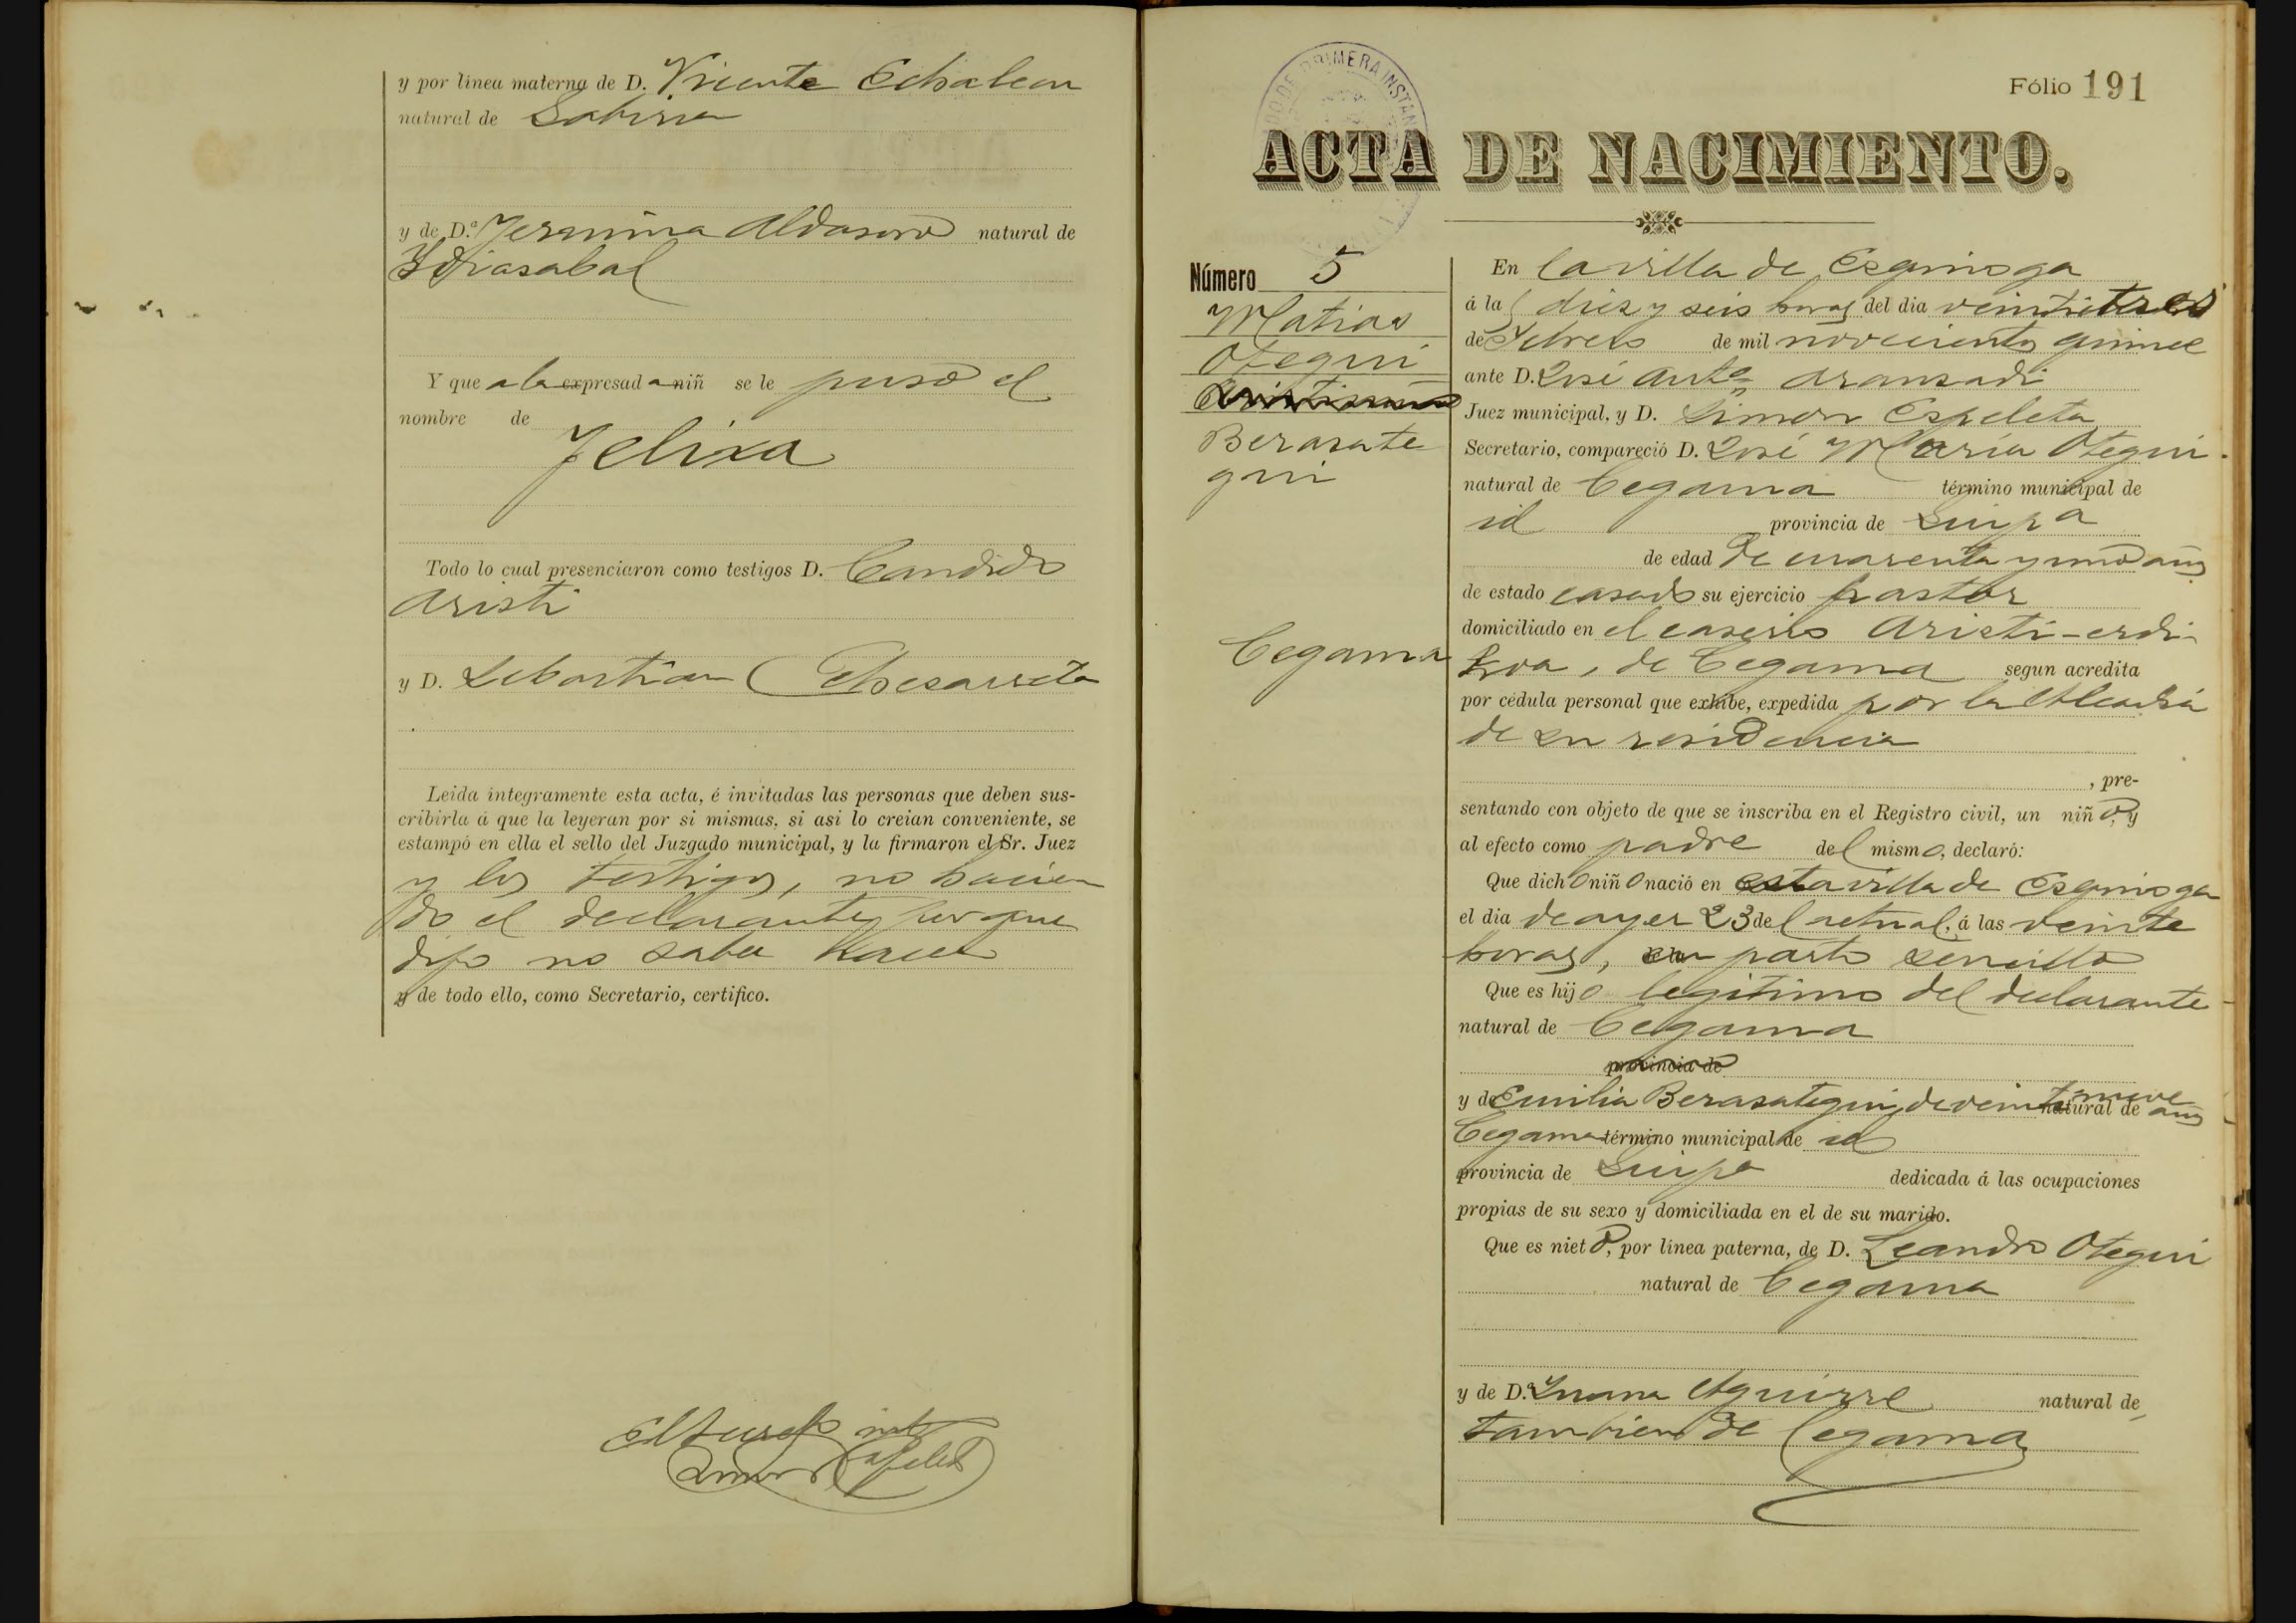 y por línea materna de D. Vicente Echaleon
natural de Sabina
y de D.ª Geronima Aldasoro natural de
Ydiasabal
Y que a la expresad a niñ se le puso el
nombre de
Felixa
Todo lo cual presenciaron como testigos D. Candido
Aristi
y D. Sebastian Echesarreta
Leida íntegramente esta acta, é invitadas las personas que deben sus-
cribirla á que la leyeran por si mismas, si asi lo creian conveniente, se
estampó en ella el sello del Juzgado municipal, y la firmaron el Sr. Juez
y los testigos, no hacien
do el declarante, por que
dijo no saber hacer
y de todo ello, como Secretario, certifico.
Simon Espeleta
Fólio 191
JUZGADO DE PRIMERA INSTAN
ACTA DE NACIMIENTO.
Número 5
Matias
Otegui
Berasate
gui
Cegama
En la villa de Esquioga
á las diez y seis horas del dia veintitres
de Febrero de mil novecientos quince
ante D. José Anto Aransadi
Juez municipal, y D. Simon Espeleta
Secretario, compareció D. José María Otegui
natural de Cegama término municipal de
id provincia de Guipa
de edad de cuarenta y uno años
de estado casado su ejercicio pastor
domiciliado en el caserio Aristi-erdi-
koa, de Cegama segun acredita
por cédula personal que exhibe, expedida por la Alcaldia
de su residencia
, pre-
sentando con objeto de que se inscriba en el Registro civil, un niño, y
al efecto como padre del mismo, declaró:
Que dicho niño nació en esta villa de Esquioga
el dia de ayer 23 del actual, á las veinte
horas, en parto sencillo
Que es hijo legitimo del declarante
natural de Cegama
provincia de
y de Emilia Berasategui, de veintinueve años natural de
Cegama término municipal de id
provincia de Guipa dedicada á las ocupaciones
propias de su sexo y domiciliada en el de su marido.
Que es nieto, por línea paterna, de D. Leandro Otegui
natural de Cegama
y de D.ª Juana Aguirre natural de
tambien de Cegama